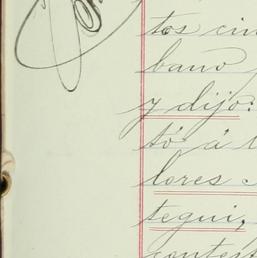 tos cin
bano
y dijo:
tó á
lores
tegui,
contest